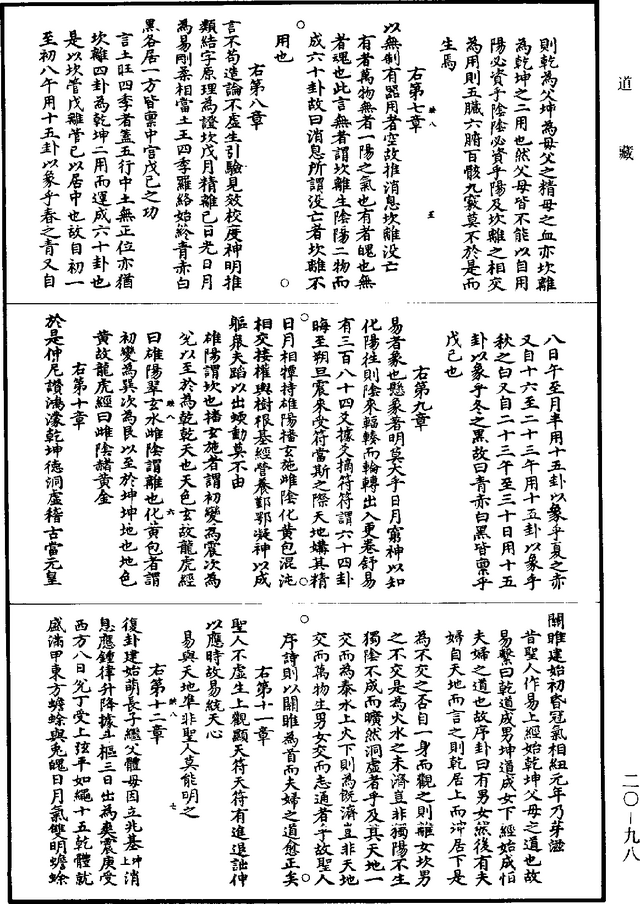 道藏
則乾為父坤為母父之精母之血亦坎離
為乾坤之二用也然父母皆不能以自用
陽必資乎陰陰必資乎陽及坎離之相交
為用則五臟六腑百骸九竅莫不於是而
生焉
右第七章
以無制有器用者空故推消息坎離沒亡
有者萬物無者一陽之氣也有者魄也無
者魂也此言無者謂坎離生陰陽二物而
成六十卦故曰消息所謂沒亡者坎離不
用也
右第八章
言不苟造論不虛生引驗見效校度神明推
類結字原理為證坎戊月精離己日光日月
為易剛柔相當土王四季羅絡始終青赤白
黑各居一方皆稟中宮戊己之功
言土旺四季者蓋五行中土無正位亦猶
坎離四卦為乾坤二用而運成六十卦也
是以坎管戊離管己以居中也故自初一
至初八午用十五卦以象乎春之青又自
八日午至月半用十五卦以象乎夏之赤
又自十六至二十三午用十五卦以象乎
秋之白又自二十三午至三十日用十五
卦以象乎冬之黑故曰青赤白黑皆稟乎
戊己也
右第九章
易者象也懸象著明莫大乎日月窮神以知
化陽往則陰來輻輳而輪轉出入更卷舒易
有三百八十四爻據爻摘符符謂六十四卦
晦至朔旦震來受符當斯之際天地媾其精
日月相撢持雄陽播玄施雌陰化黃包混沌
相交接權輿樹根基經營養鄞鄂凝神以成
軀衆夫蹈以出蝡動莫不由
雄陽謂坎也播玄施者謂初變為震次為
兌以至於為乾乾天也天色玄故龍虎經
曰雄陽翠玄水雌陰謂離也化黃包者謂
初變為巽次為艮以至於坤坤地也地色
黃故龍虎經曰雌陰赭黃金
右第十章
於是仲尼讚鴻濛乾坤德洞虛稽古當元皇
關雎建始初昏冠氣相紐元年乃芽滋
昔聖人作易上經始乾坤父母之道也故
易繫曰乾道成男坤道成女下經始咸怕
夫婦之道也故序卦曰有男女然後有夫
婦自天地而言之則乾居上而坤居下是
為不交之否自一身而觀之則離女坎男
之不交是為火水之未濟豈非獨陽不生
獨陰不成而曠然洞虛者乎及其天地一
交而為泰水上火下則為既濟豈非天地
交而萬物生男女交而志通者乎故聖人
序詩則以關雎為首而夫婦之道愈正矣
右第十一章
聖人不虛生上觀顯天符天符有進退詘伸
以應時故易統天心
易與天地準非聖人莫能明之
右第十二章
復卦建始萌長子繼父體母因立兆基坤上消
息應鍾律升降據斗樞三日出為爽震庚受
西方八日兌丁受上弦平如繩十五乾體就
盛滿甲東方蟾蜍與兎魄日月氣雙明蟾蜍
二〇—九八